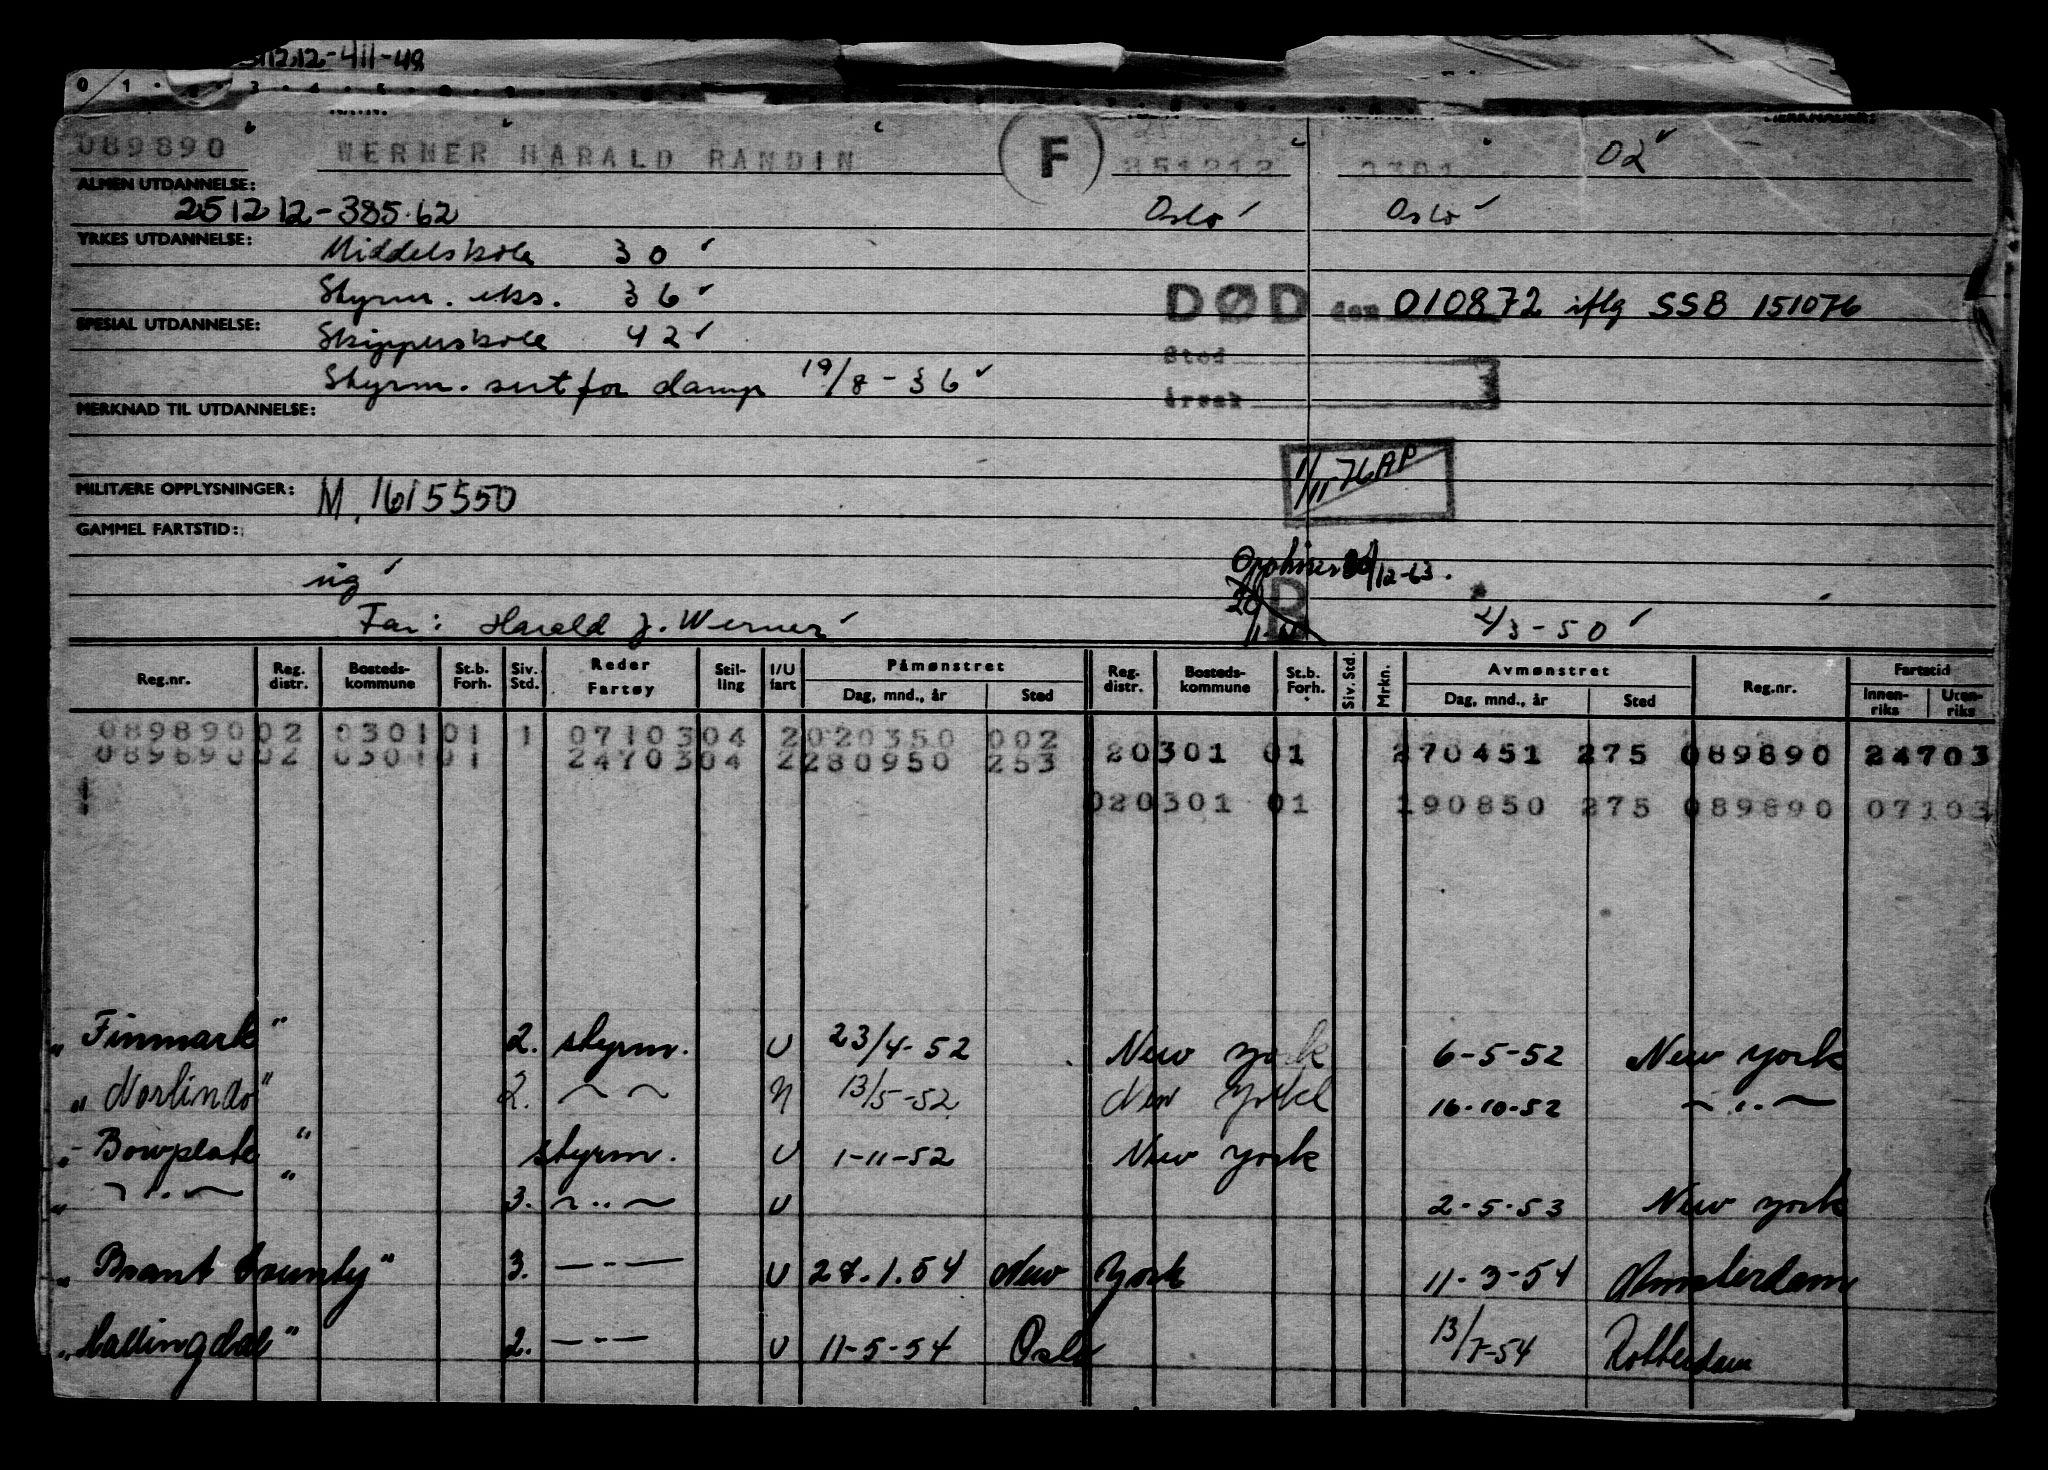 1212-411-48
0 1
089890 WERNER HARALD RANDIN F 251212 0301 02
ALMEN UTDANNELSE:
251212-385.62 Oslo Oslo
YRKES UTDANNELSE:
Middelskole 30
Styrm. eks. 36
DØD den 010872 iflg SSB 151076
SPESIAL UTDANNELSE:
Skipperskole 42
Sted
Styrm. sert for damp 19/8-36
årsak
MERKNAD TIL UTDANNELSE:
1/11-76 AP
MILITÆRE OPPLYSNINGER: M. 1615550
GAMMEL FARTSTID:
/12-63.
ug
Far: Harald J. Werner 2/3-50
Reg.nr. Reg. distr. Bosteds-kommune St.b. Forh. Siv. Std. Reder Fartøy Stil-ling I/U fart Påmønstret Dag, mnd., år Sted Reg. distr. Bosteds-kommune St.b. Forh. Siv. Std. Mrkn. Avmønstret Dag, mnd., år Sted Reg.nr. Fartstid Innen-riks Uten-riks
089890 02 0301 01 1 0710304 2 020350 002
089890 02 0301 01 2470304 2 280950 253 20301 01 270451 275 089890 24703
020301 01 190850 275 089890 07103
"Finmark" 2. styrm. U 23/4-52 New York 6-5-52 New York
"Norlindo" 2. 13/5-52 New York 16-10-52
"Bowplate" styrm. U 1-11-52 New York
" 3. U 2-5-53 New York
"Brant County" 3. U 27.1.54 New York 11-3-54 Amsterdam
"Hallingdal" 2. U 11-5-54 Oslo 13/7-54 Rotterdam